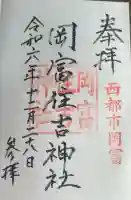 奉拝
西都市岡富
岡富
岡富住吉神社
令和六年十二月二十八日
参拝